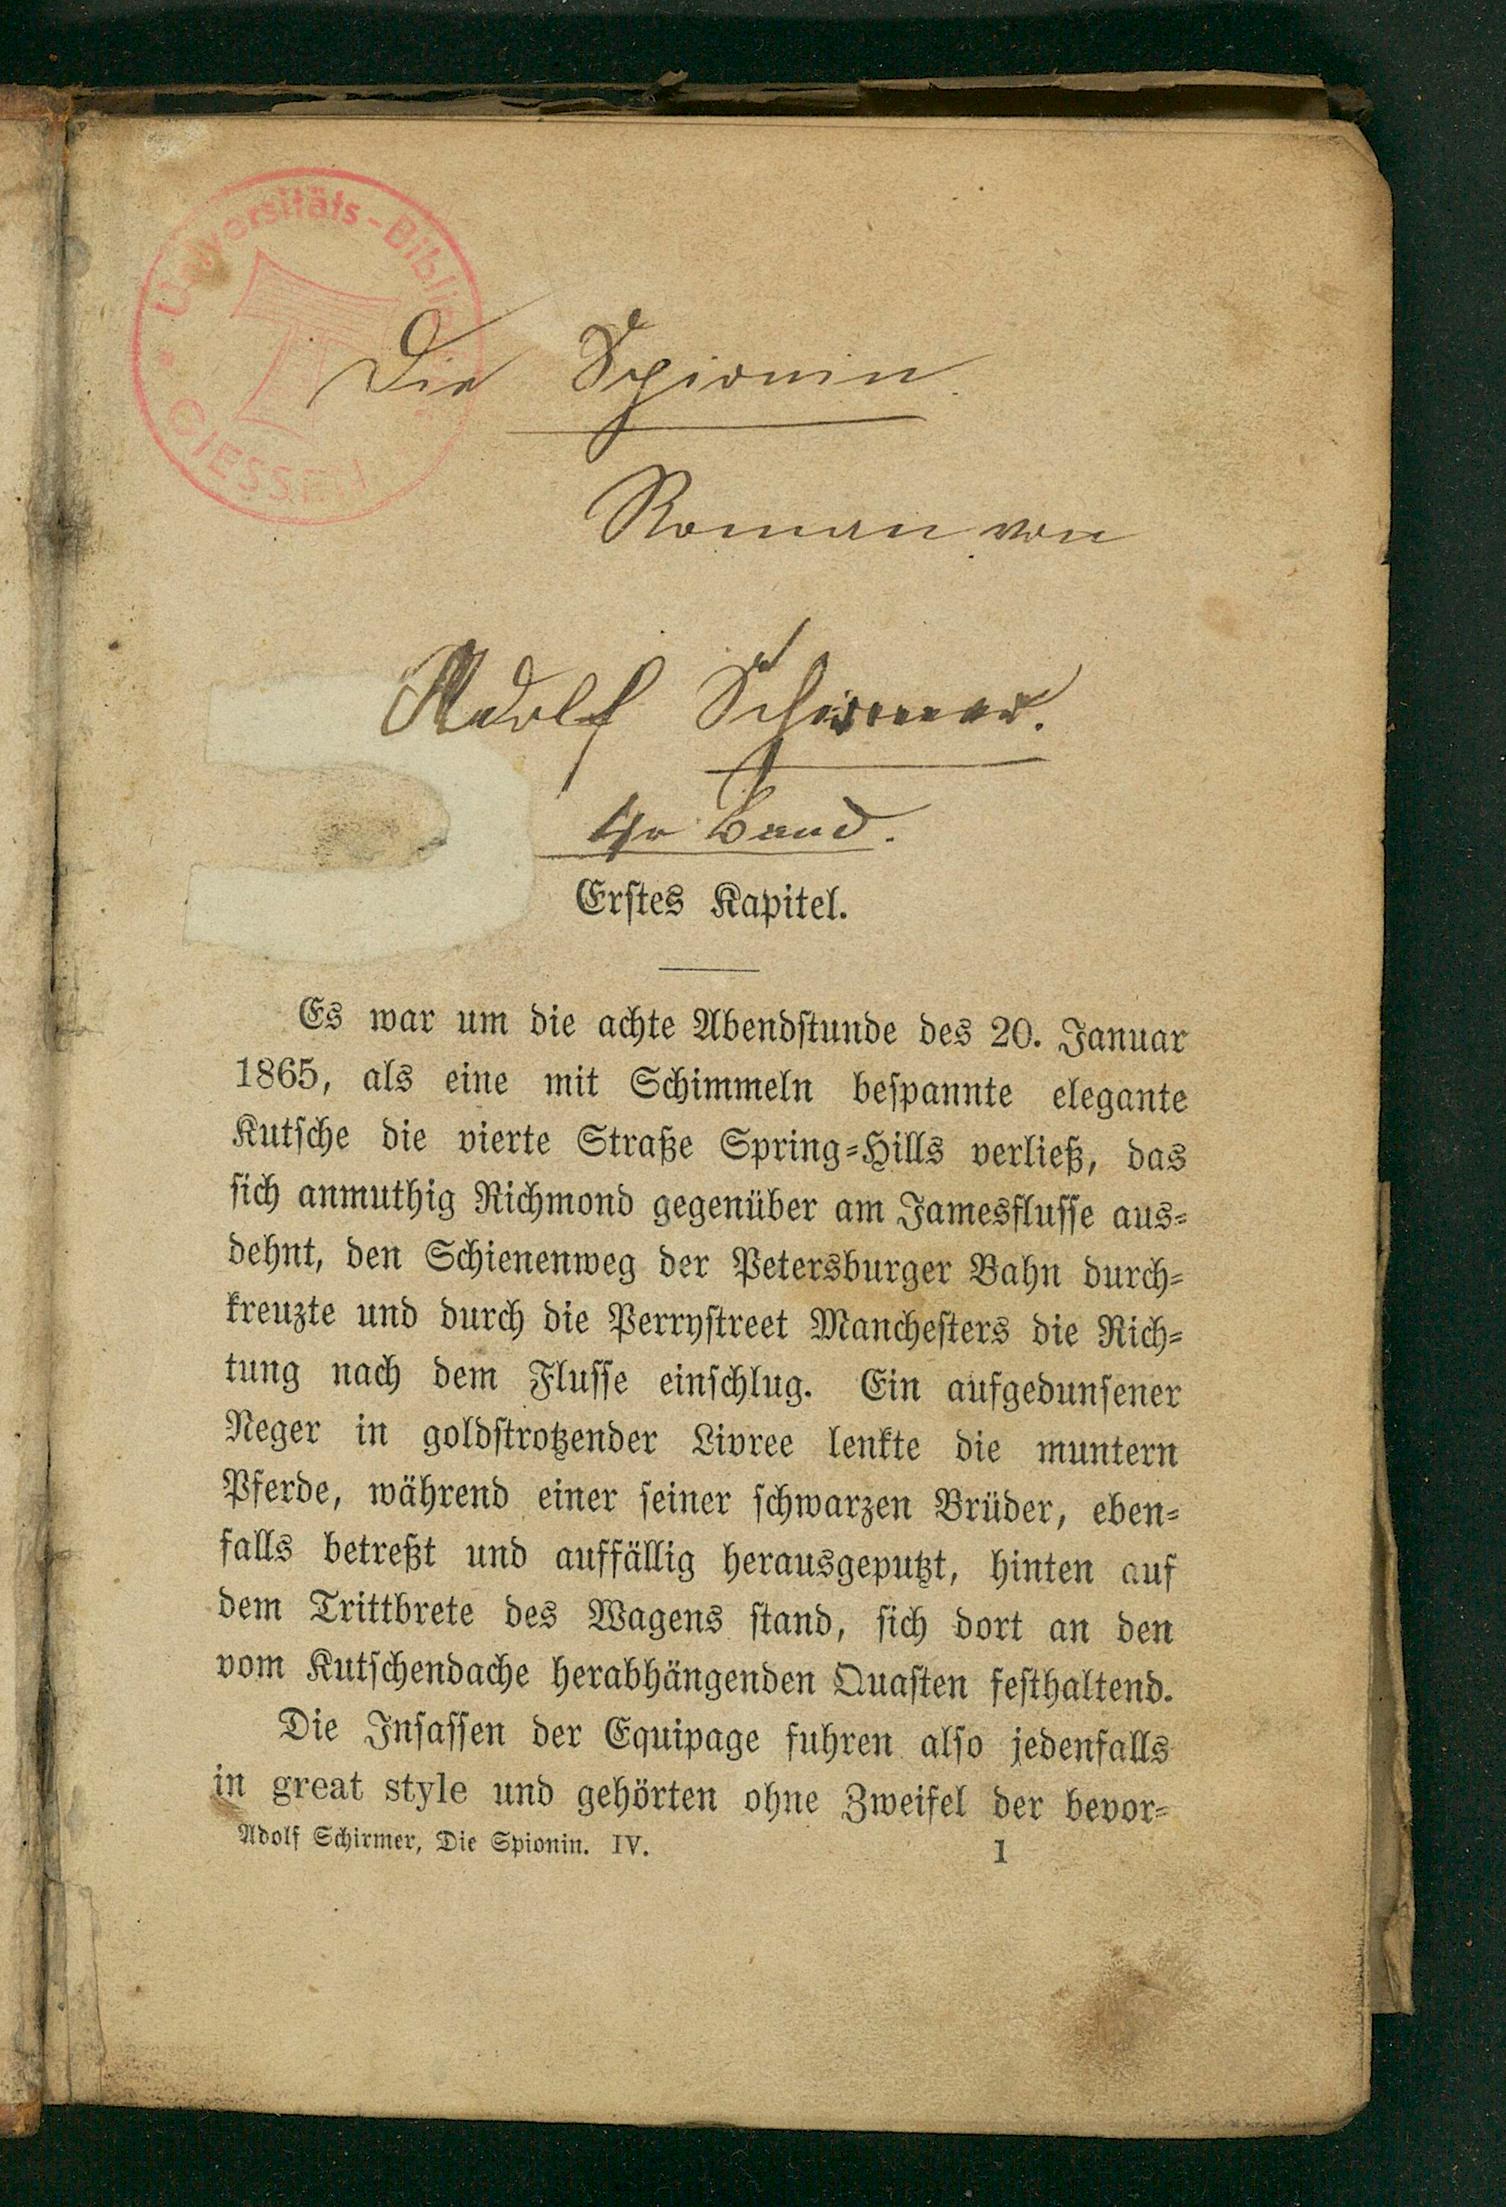 Universitäts-Bibliothek
GIESSEN
Die Spionin.
Roman von
Adolf Schirmer.
4r Band.
Erstes Kapitel.
Es war um die achte Abendstunde des 20. Januar
1865, als eine mit Schimmeln bespannte elegante
Kutsche die vierte Straße Spring-Hills verließ, das
sich anmuthig Richmond gegenüber am Jamesflusse aus-
dehnt, den Schienenweg der Petersburger Bahn durch-
kreuzte und durch die Perrystreet Manchesters die Rich-
tung nach dem Flusse einschlug. Ein aufgedunsener
Neger in goldstrotzender Livree lenkte die muntern
Pferde, während einer seiner schwarzen Brüder, eben-
falls betreßt und auffällig herausgeputzt, hinten auf
dem Trittbrete des Wagens stand, sich dort an den
vom Kutschendache herabhängenden Quasten festhaltend.
Die Insassen der Equipage fuhren also jedenfalls
in great style und gehörten ohne Zweifel der bevor-
Adolf Schirmer, Die Spionin. IV. 1